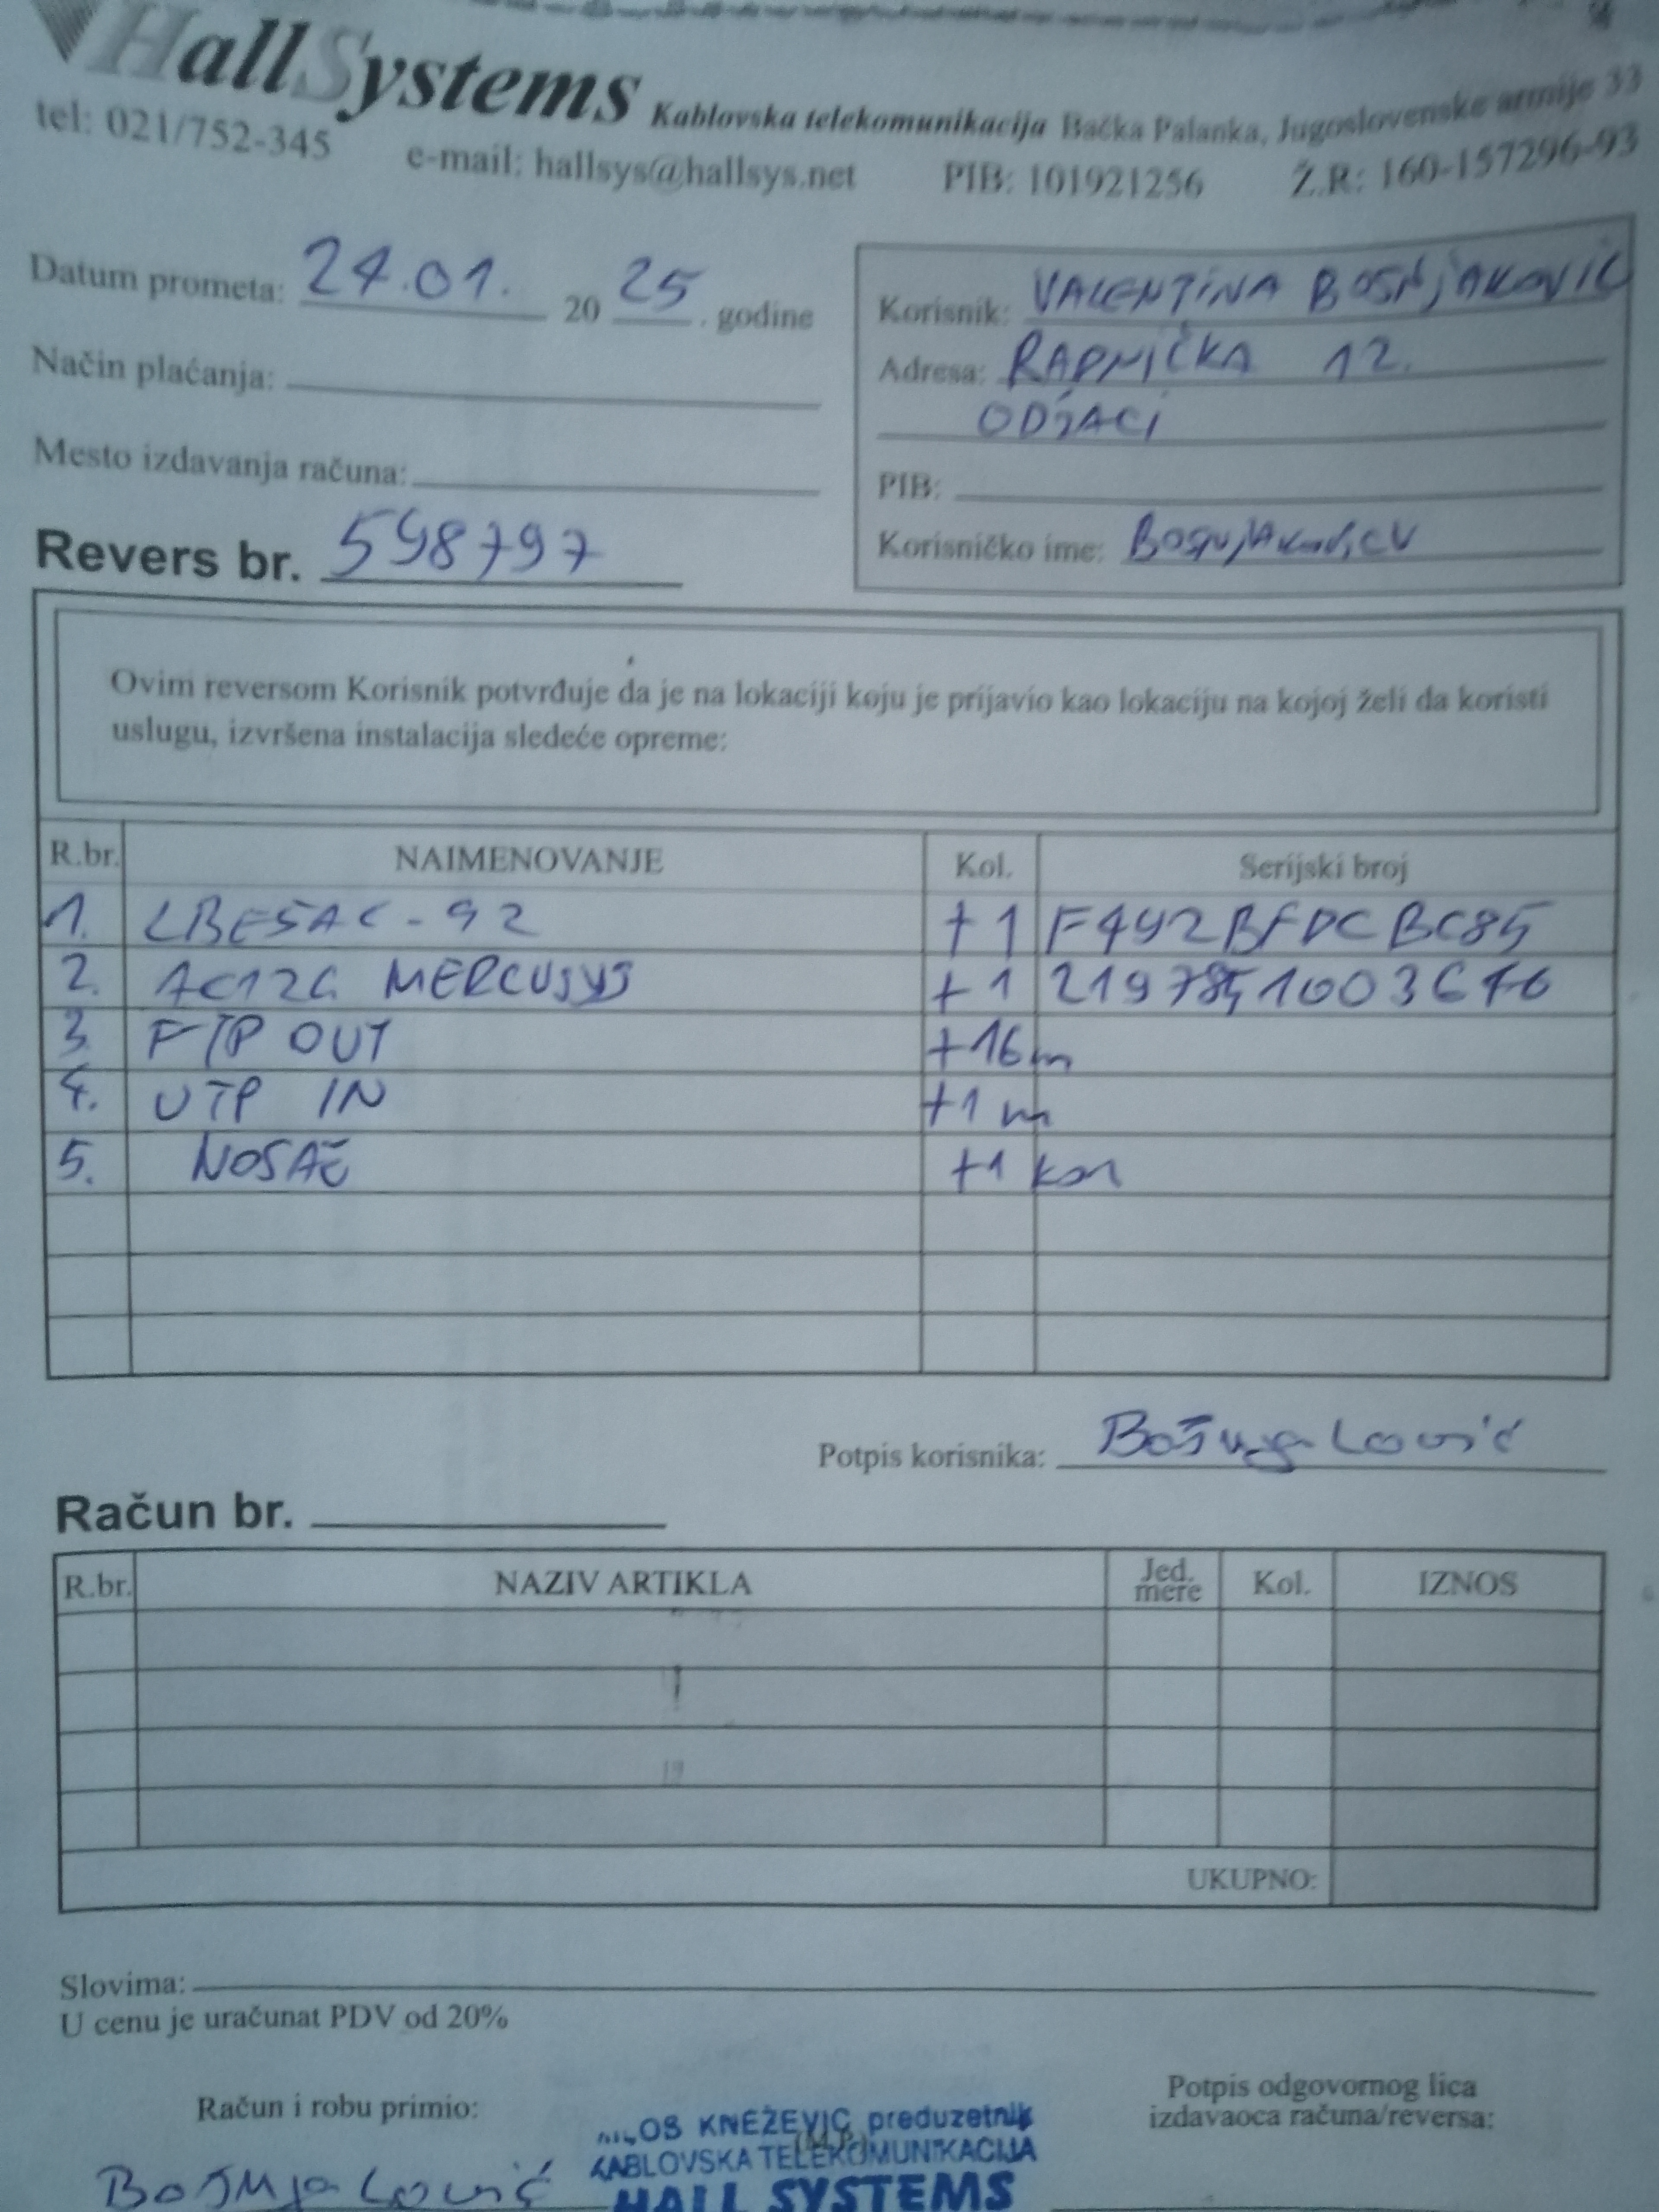 HallSystems Kablovska telekomunikacija Bačka Palanka, Jugoslovenske armije 33
tel: 021/752-345 e-mail: hallsys@hallsys.net PIB: 101921256 Ž.R: 160-157296-93
Datum prometa: 24.01. 20 25 . godine
Način plaćanja:
Mesto izdavanja računa:
Revers br. 598797
Korisnik: VALENTINA BOŠNJAKOVIĆ
Adresa: RADNIČKA 12.
ODŽACI
PIB:
Korisničko ime: BOSNJAKOVICV
Ovim reversom Korisnik potvrđuje da je na lokaciji koju je prijavio kao lokaciju na kojoj želi da koristi
uslugu, izvršena instalacija sledeće opreme:
R.br. NAIMENOVANJE Kol. Serijski broj
1. LBE5AC-92 +1 F492BFDCBC85
2. AC12G MERCUSYS +1
3. FTP OUT +16 m
4. UTP IN +1 m
5. NOSAČ +1 kom
Potpis korisnika: Bošnjaković
Račun br.
R.br. NAZIV ARTIKLA Jed. mere Kol. IZNOS
UKUPNO:
Slovima:
U cenu je uračunat PDV od 20%
Račun i robu primio:
Potpis odgovornog lica
izdavaoca računa/reversa:
KNEŽEVIĆ preduzetnik
KABLOVSKA TELEKOMUNIKACIJA
HALL SYSTEMS
Bošnjaković